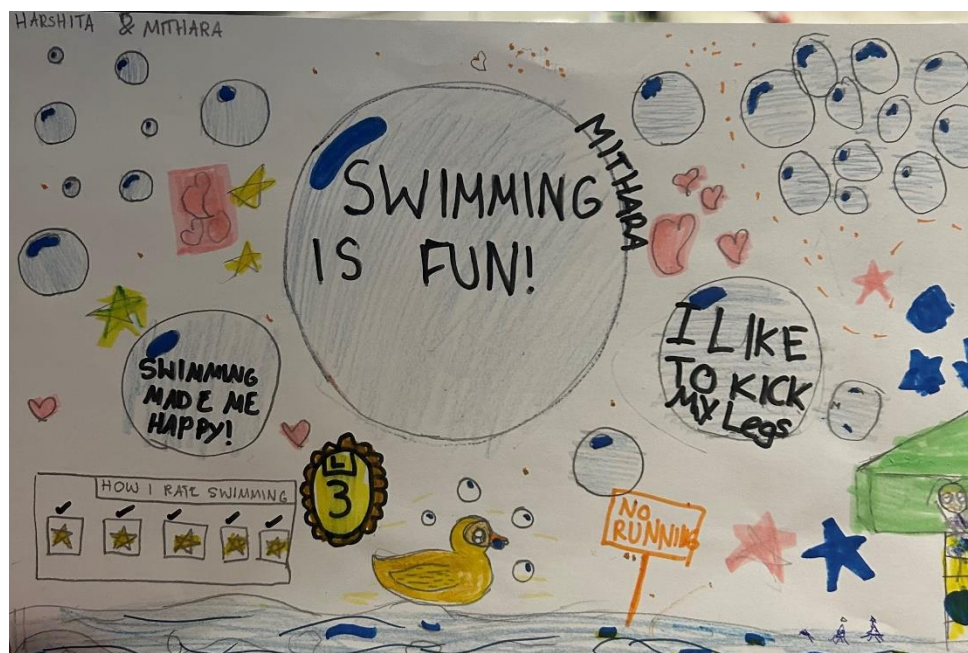 HARSHITA & MITHARA
SWIMMING
IS FUN!
MITHARA
SWIMMING
MADE ME
HAPPY!
I LIKE
TO KICK
MY Legs
HOW I RATE SWIMMING
L
3
NO
RUNNING